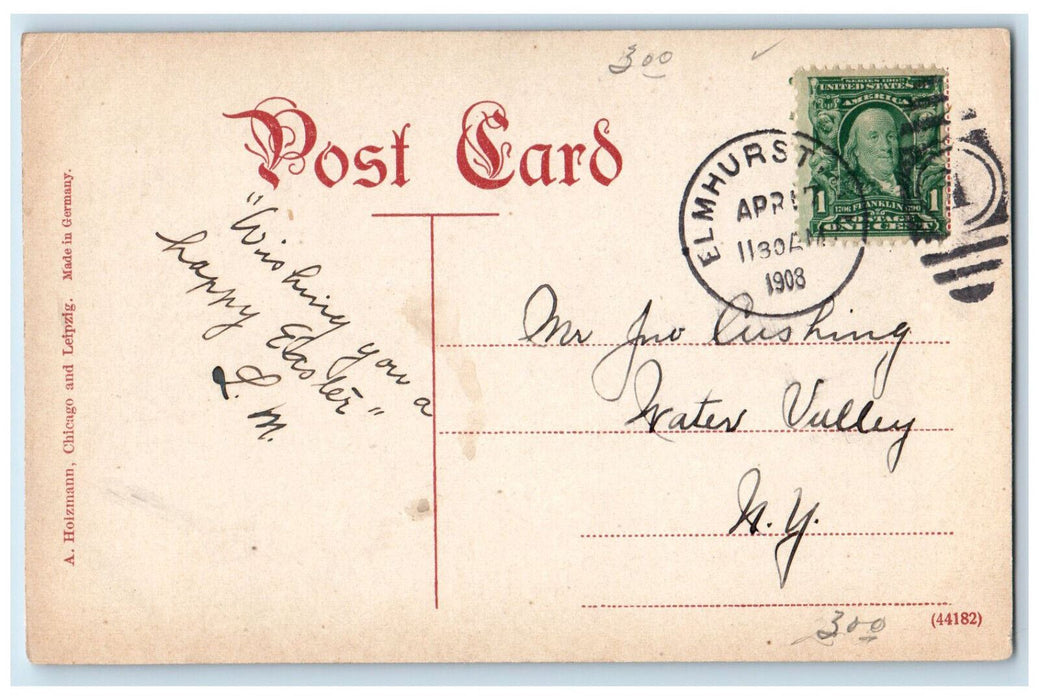 3 00
Post Card
SERIES 1902
UNITED STATES OF
AMERICA
1706 FRANKLIN 1790
POSTAGE
1 ONE CENT 1
ELMHURST
APR 17
1130A
1908
1
"Wishing you a
happy Easter"
L. M.
Mr Jno Cushing
Water Valley
N.Y.
A. Holzmann, Chicago and Leipzig. Made in Germany.
3 00
(44182)